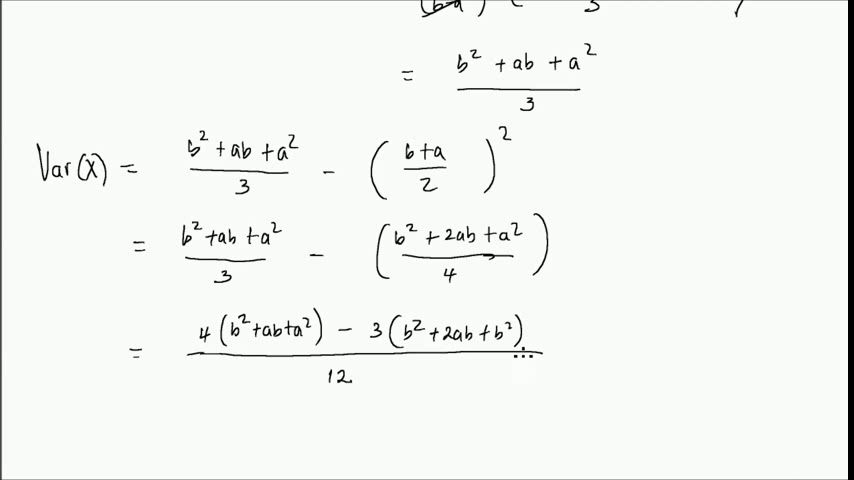 = b² + ab + a² / 3
Var(X) = b² + ab + a² / 3 - ( b+a / 2 )²
= b² + ab + a² / 3 - ( b² + 2ab + a² / 4 )
= 4(b² + ab + a²) - 3(b² + 2ab + b²) / 12